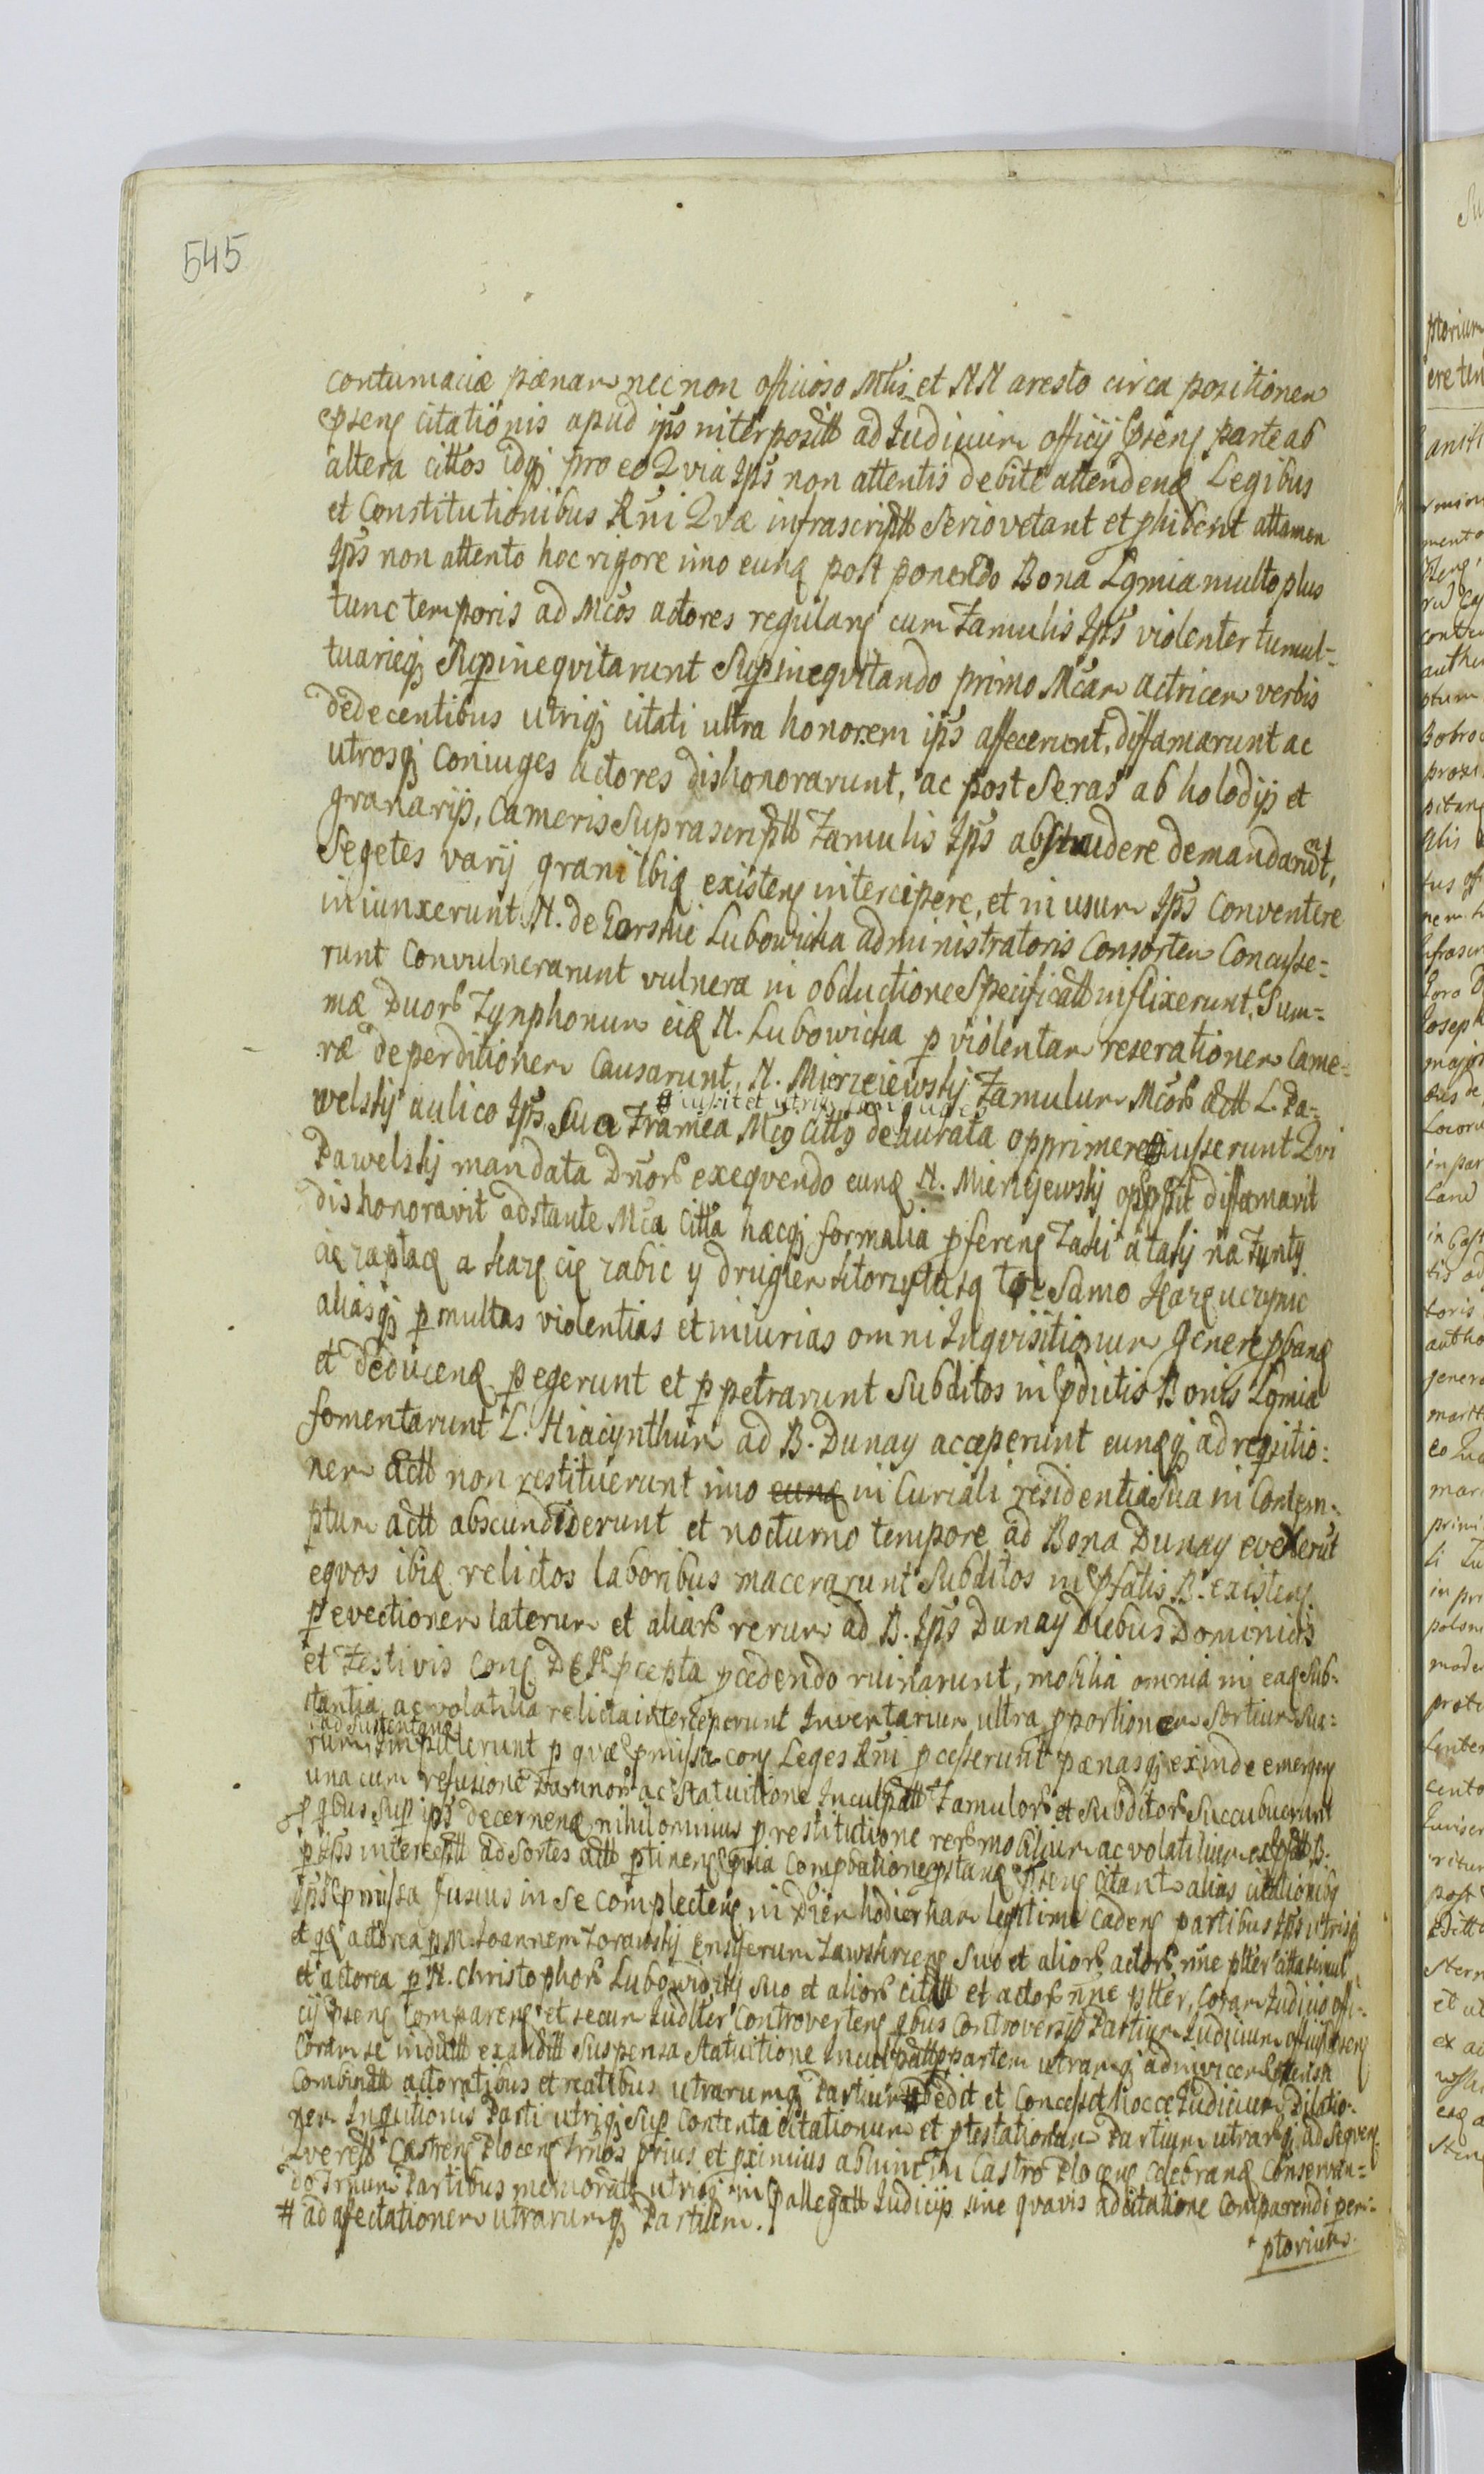 545
contumaciæ pænam nec non officioso Mtis et NN aresto circa positionem
pseng citationis apud ips interpositt ad Iudicium officij pseng parte ab
altera cittos idqj pro eo Qvia Ips non attentis debite attendenq Legibus
et Constitutionibus Rni Qvæ infrascriptt serio vetant et phibent attamen
Ips non attento hoc rigore imo eunq post ponendo Bona Lgmia multo plus
tunc temporis ad Mcos actores regulang cum Famulis Ips violenter tumul-
tuarieqj Supinequitarunt Supinequitando primo Mcam actricem verbis
dedecentibus utriqj citati ultra honorem ips affecerunt, diffamarunt ac
utrosqj Coniuges Actores dishonorarunt, ac post Seras ab holodijs et
granarijs, Cameris Suprascriptt Famulis Ips abstrudere demandarut,
Segetes varij grani Ibiq existeng intercipere, et in usum Ips Conventere
iniunxerunt N. de Garskie Lubowicka administratoris Consortem Concusse-
runt Convulnerarunt vulnera in obductione Specificatt inflixerunt, Sum-
mæ Duorb Tynphonum eiq N. Lubowicka p violentam reserationem Came-
ræ deperditionem Causarunt, N. Mierzeiewskij Famulum Mcorb Actt L. Pa-
welskij aulico Ips, Sua Framea Mcg cittg deaurata opprimere iusserunt Qvi
Pawelskij mandata Dnorb exequendo eunq N. Mierzejewskij oppssit diffamavit
dishonoravit adstante Mca Citta hæcqj formalia pfereng Taki a taki na Funty
cię zapłacę a każę cię zabic y drugiem ktorzy tu są toż samo każę uczynic
aliasqj p multas violentias et iniurias omni Inquisitionum genere pbanq
et deducenq p egerunt et p petrarunt Subditos in pdictis Bonis Lgmia
fomentarunt L. Hiacynthum ad B. Dunay acceperunt eunqqj ad reqsitio-
nem Actt non restituerunt imo eunq in Curiali residentia Sua in Contem-
ptum actt absconderunt et nocturno tempore ad Bona Dunay evexerut
equos ibiq relictos laboribus macerarunt Subditos in pfatis B. existeng
p evectionem laterum et aliarb rerum ad B. Ips Dunay Diebus Dominicis
et Festivis Cong DEI pcepta pcedendo ruinarunt, mobilia omnia in eaq sub-
stantia ac volatilia relicta interceperunt Inventarium ultra pportionem Sortium Sua-
ad sustentanq
rum impulerunt p quæ pmissa cong Leges Rni pcesserunt pænasqj exinde emergeng
una cum refusione Damnorb ac Statuitione Inculpatt Famulorb et Subditorb Succubuerunt
p qbus sup ips decernenq nihilominus p restitutione rerb mobilium ac volatilium
Ips pmissa fusius in se complecteng in Diem hodiernam legitime cadeng partibus Ips utrisqj
et qq actorea p M. Ioannem Zorawskij Ensiferum Zawskrzeng suo et aliorb actorb nne plter citta simul
et actorea p N. Christophorb Lubowidzkij suo et aliorb citatt et actorb nne plter, Coram Iudicio offi-
cij pseng Compareng et secum Iudlter Controverteng qbus Controversijs Partium Iudicium officij pseng
Coram se inductt exauditt Suspensa Statuitione Inculpatt p partem utramqj adinvicem
Combinatt actoratibus et reatibus utrarumqj Partium # Dedit et Concessit Hocce Iudicium Dilatio-
nem Inqutionis Parti utriqj Sup Contenta citationum et ptestationum Partium utrarqj ad Sequen
Querelb Castreng Ploceng Trnos prius et pximius abhinc in Castro Ploceng Celebranq Conservan-
do Trnum Partibus memoratt utrisqj in pallegatt Iudicijs sine quavis adcitatione Comparendi perm-
# ad afectationem utrarumqj Partium.
ptorium.